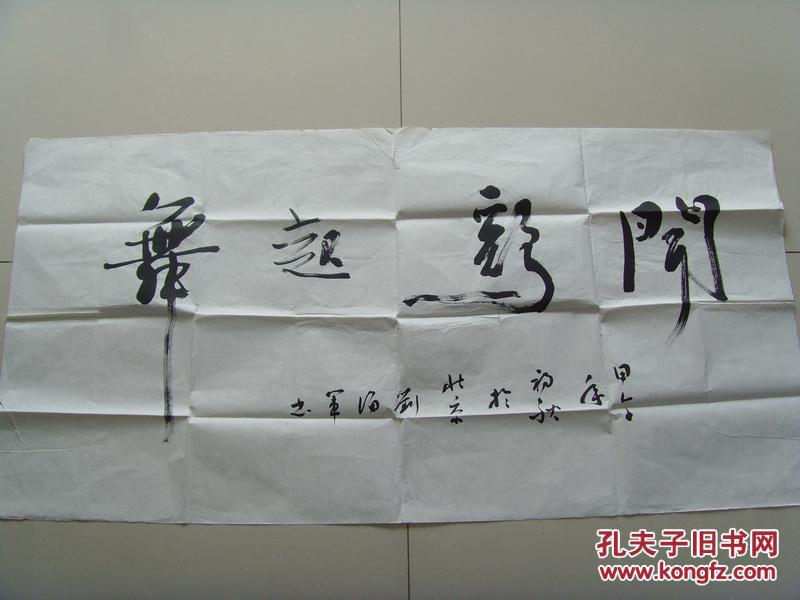 聞鷄起舞
甲午年初秋於北京劉軍书
孔夫子旧书网
www.kongfz.com